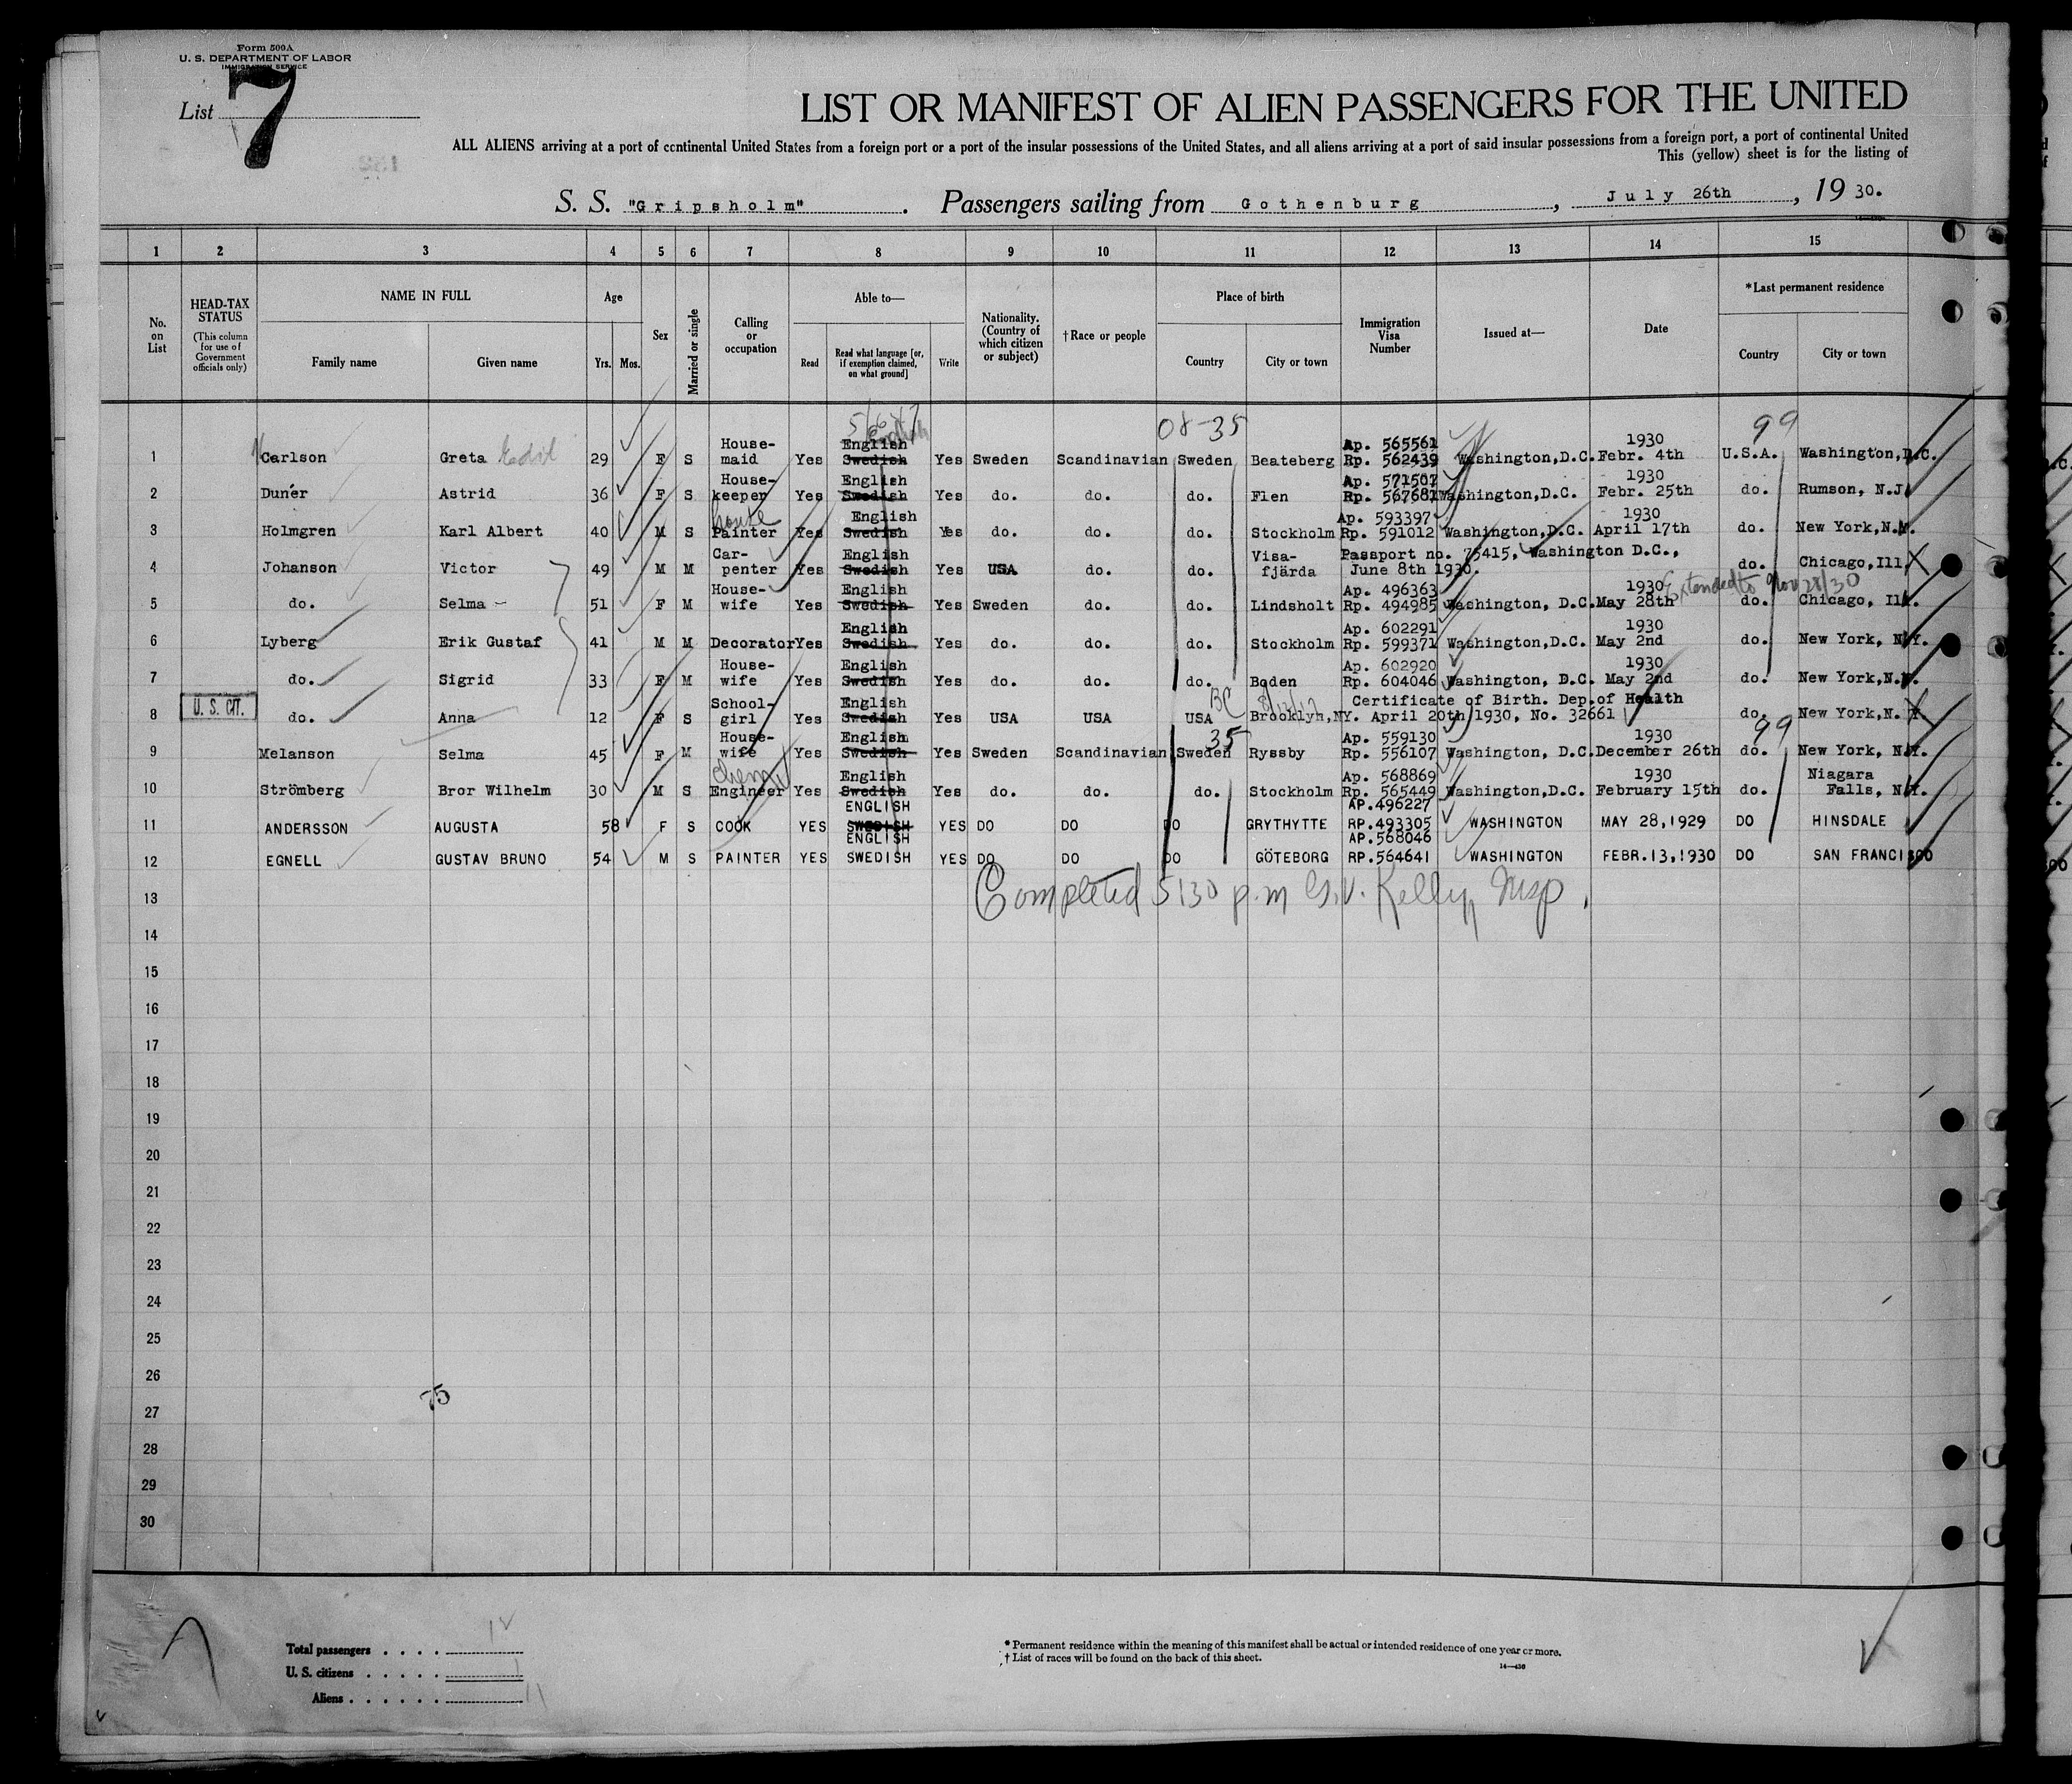 Form 500A
U. S. DEPARTMENT OF LABOR
IMMIGRATION SERVICE
List 7
LIST OR MANIFEST OF ALIEN PASSENGERS FOR THE UNITED
ALL ALIENS arriving at a port of continental United States from a foreign port or a port of the insular possessions of the United States, and all aliens arriving at a port of said insular possessions from a foreign port, a port of continental United
This (yellow) sheet is for the listing of
S. S. "Gripsholm" . Passengers sailing from Gothenburg , July 26th , 19 30.
1 2 3 4 5 6 7 8 9 10 11 12 13 14 15
No. on List
HEAD-TAX STATUS
(This column for use of Government officials only)
NAME IN FULL
Family name Given name
Age
Yrs. Mos.
Sex
Married or single
Calling or occupation
Able to—
Read
Read what language [or, if exemption claimed, on what ground]
Write
Nationality. (Country of which citizen or subject)
†Race or people
Place of birth
Country City or town
Immigration Visa Number
Issued at—
Date
*Last permanent residence
Country City or town
08-35 99
House- English Ap. 565561 1930
1 Carlson Greta 29 F S maid Yes Swedish Yes Sweden Scandinavian Sweden Beateberg Rp. 562439 Washington,D.C. Febr. 4th U.S.A. Washington,D.C.
House- English Ap. 571507 1930
2 Dunér Astrid 36 F S keeper Yes Swedish Yes do. do. do. Flen Rp. 567681 Washington,D.C. Febr. 25th do. Rumson, N.J.
house English Ap. 593397 1930
3 Holmgren Karl Albert 40 M S Painter Yes Swedish Yes do. do. do. Stockholm Rp. 591012 Washington,D.C. April 17th do. New York,N.Y.
Car- English Visa- Passport no. 75415, Washington D.C.,
4 Johanson Victor 49 M M penter Yes Swedish Yes USA do. do. fjärda June 8th 1930. do. Chicago,Ill.
House- English Ap. 496363 1930 Extended to Nov 28/30
5 do. Selma 51 F M wife Yes Swedish Yes Sweden do. do. Lindsholt Rp. 494985 Washington, D.C. May 28th do. Chicago, Ill.
English Ap. 602291 1930
6 Lyberg Erik Gustaf 41 M M Decorator Yes Swedish Yes do. do. do. Stockholm Rp. 599371 Washington,D.C. May 2nd do. New York, N.Y.
House- English Ap. 602920 1930
7 do. Sigrid 33 F M wife Yes Swedish Yes do. do. do. Boden Rp. 604046 Washington, D.C. May 2nd do. New York,N.Y.
U. S. CIT. School- English BC Certificate of Birth. Dep.of Health
8 do. Anna 12 F S girl Yes Swedish Yes USA USA USA Brooklyn,NY. April 20th 1930, No. 32661 do. New York,N.Y.
House- English 35 Ap. 559130 1930 99
9 Melanson Selma 45 F M wife Yes Swedish Yes Sweden Scandinavian Sweden Ryssby Rp. 556107 Washington, D.C. December 26th do. New York, N.Y.
English Ap. 568869 1930 Niagara
10 Strömberg Bror Wilhelm 30 M S Engineer Yes Swedish Yes do. do. do. Stockholm Rp. 565449 Washington,D.C. February 15th do. Falls, N.Y.
ENGLISH AP.496227
11 ANDERSSON AUGUSTA 58 F S COOK YES SWEDISH YES DO DO DO GRYTHYTTE RP.493305 WASHINGTON MAY 28,1929 DO HINSDALE
ENGLISH AP.568046
12 EGNELL GUSTAV BRUNO 54 M S PAINTER YES SWEDISH YES DO DO DO GÖTEBORG RP.564641 WASHINGTON FEBR.13,1930 DO SAN FRANCISCO
13 Completed 5130 p.m G.V. Kelly, Insp.
14
15
16
17
18
19
20
21
22
23
24
25
26
75
27
28
29
30
Total passengers . . . . 12
U. S. citizens . . . . . 1
Aliens . . . . . . 11
* Permanent residence within the meaning of this manifest shall be actual or intended residence of one year or more.
† List of races will be found on the back of this sheet.
14—430